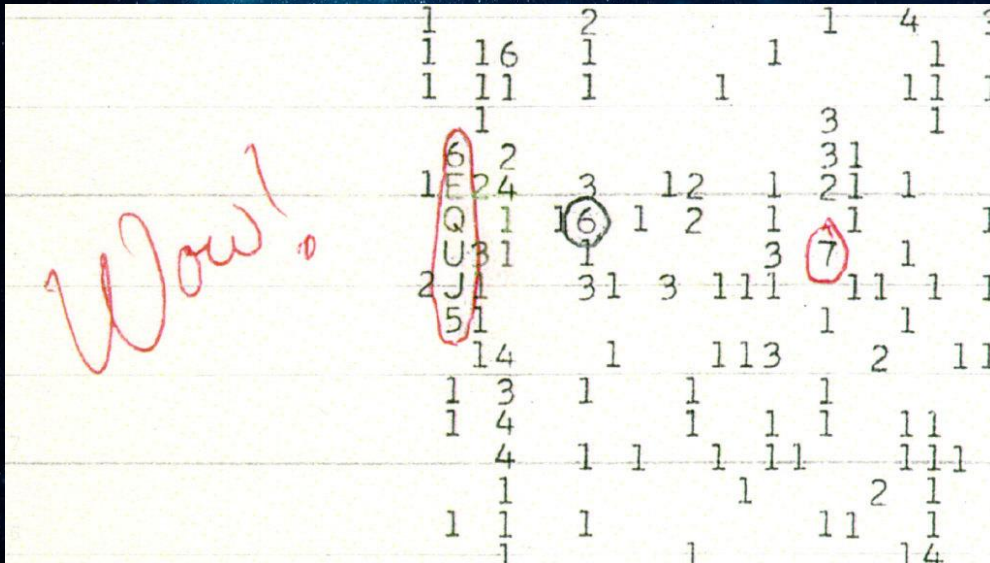 1 2 1 4 3
1 16 1 1 1
1 11 1 1 11 1
1 3 1
6 2 31
1 E24 3 12 1 21 1
Q 1 16 1 2 1 1 1
Wow!
U31 1 3 7 1
2 J1 31 3 111 11 1 1
51 1 1
14 1 113 2 11
1 3 1 1 1
1 4 1 1 1 11
4 1 1 1 11 111
1 1 2 1
1 1 1 11 1
1 1 14